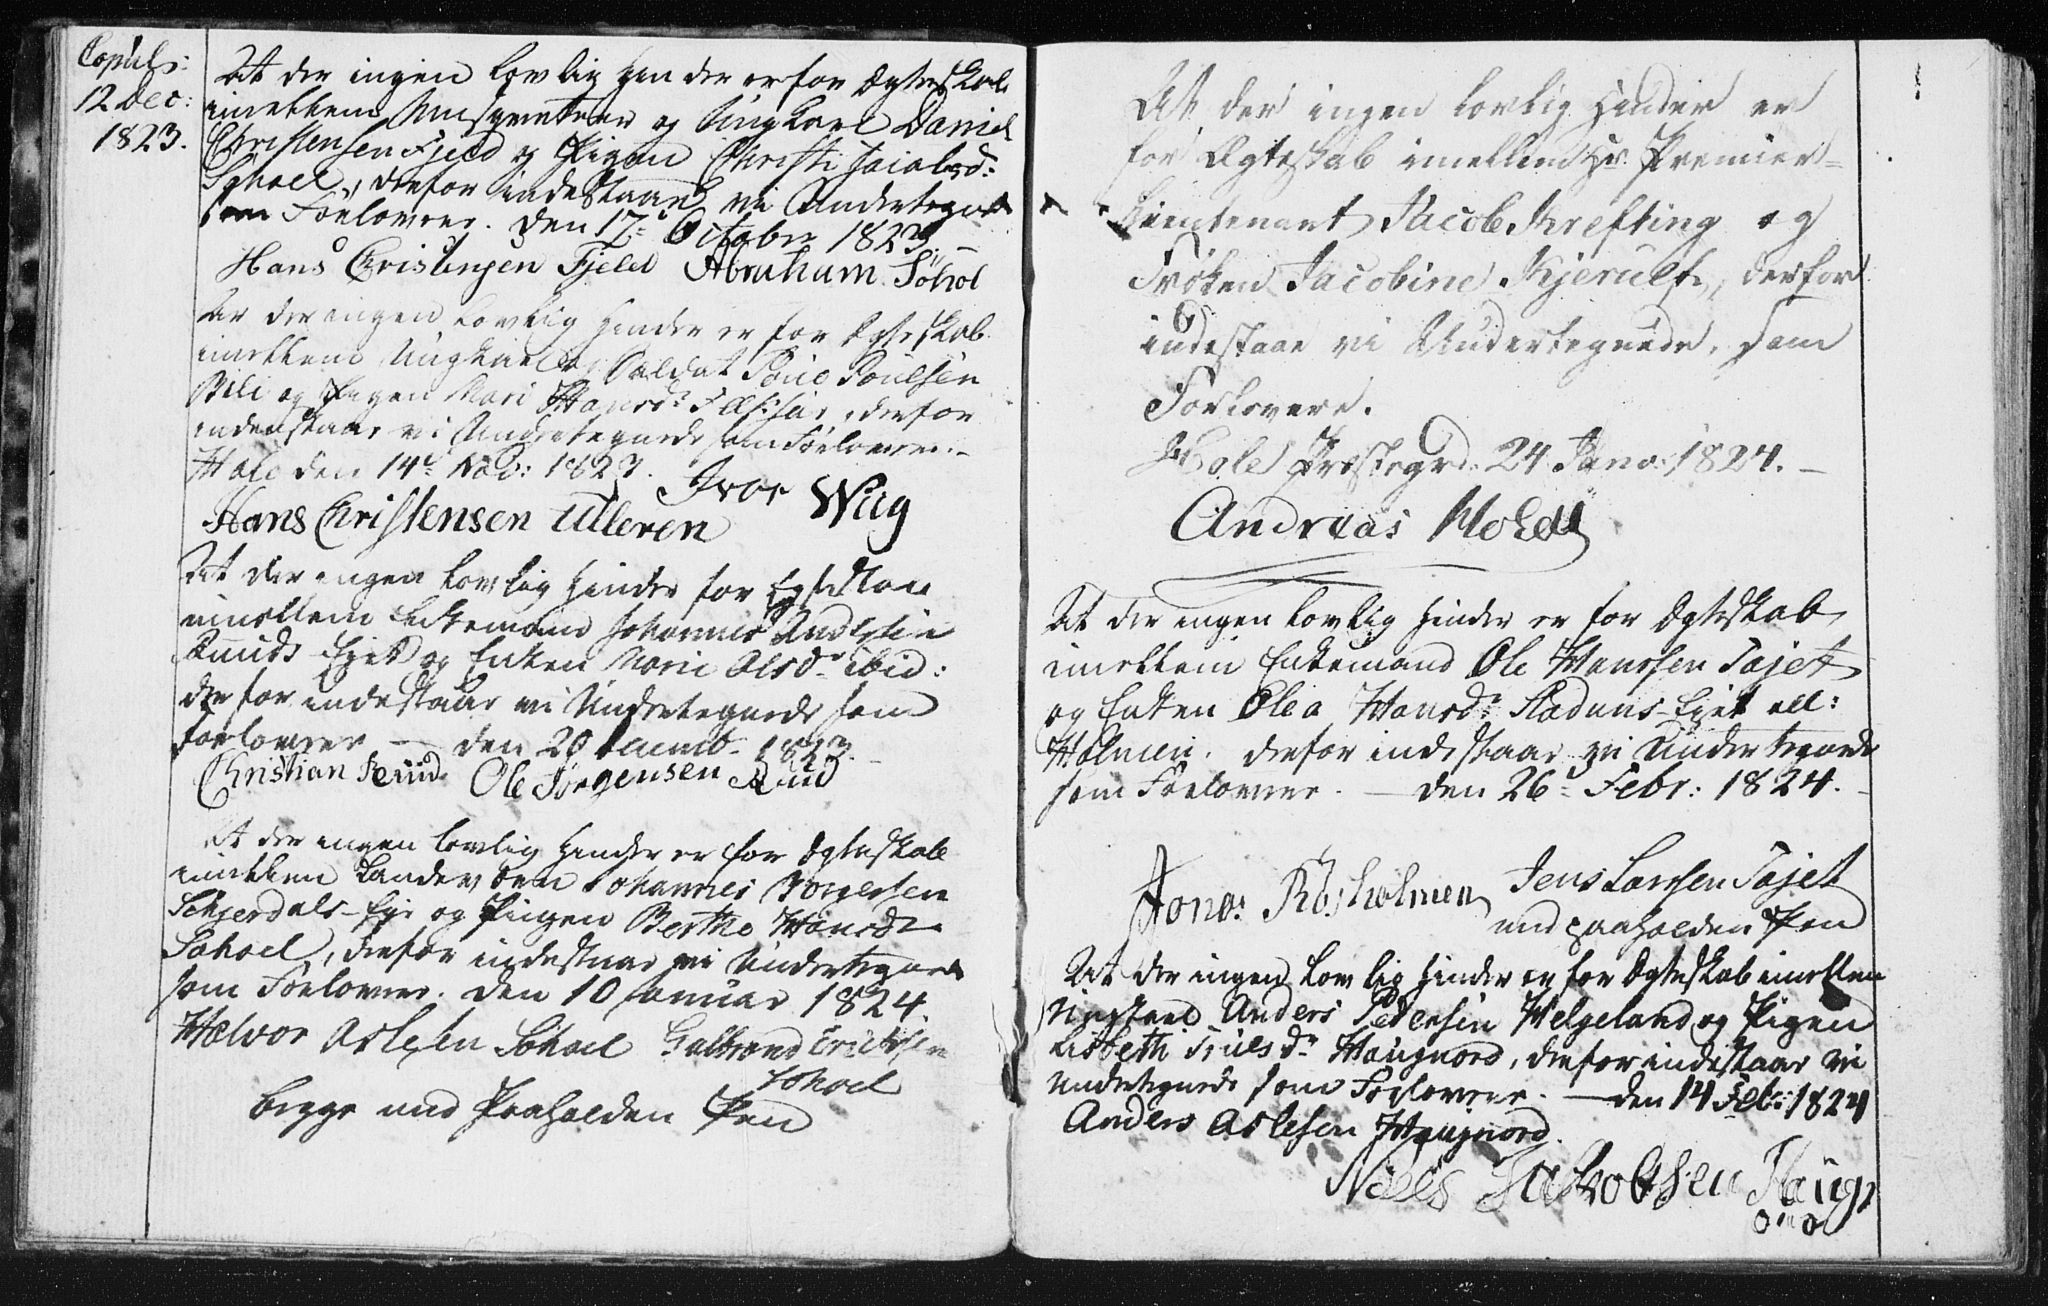 Copul:
12 Dec:
1823.
At der ingen lovlig Hinder er for Ægteskab
imellem Musqueteer og Ungkarl Daniel
Christensen Fjeld og Pigen Christi
Søhoel, derfor indestaaer vi Undertegnede
som Forlovere. Den 17 October 1823. –
Hans Christensen Fjeld Abraham Søhol
At der ingen lovlig Hinder er for Ægteskab
imellem Ungkarl og Soldat Poul Poulsen
og Pigen Mari Hansdr derfor
indestaaer vi Undertegnede som Forlovere. –
Hole den 14de Nov: 1823. Iver Wiig
Hans Christensen Ulleren
At der ingen lovlig Hinder for Egteskab
imellem Enkemand Johannes Andersen
Ruuds Eyet og Enken Marie Olsdr ibid:
derfor indestaaer vi Undertegnede som
Forlovere — den 20 1823. –
Christian Ruud Ole Jørgensen Ruud
At der ingen lovlig Hinder er for Ægteskab
imellem Landværn Johannes
og Pigen Berthe Hansdr
Søhoel, derfor indestaaer vi Undertegnede
som Forlovere. Den 10 Januar 1824.
Halvor Aslesen Søhoel Gulbrand Erichsen
Søhoel
begge med Paaholden Pen
At der ingen lovlig Hinder er
for Ægteskab imellem Hr. Premier-
Lieutenant Jacob Krefting og
Frøken Jacobine Kjerulf, derfor
indestaae vi Undertegnede, som
Forlovere.
Hole Præstegrd: 24 Janv: 1824. –
Andreas
At der ingen lovlig Hinder er for Ægteskab
imellem Enkemand Ole Hanssen Tajet
og Enken Olea Hansdr Stadums-Eyet ell:
Holmen. derfor indestaaer vi Undertegnede
som Forlovere. — den 26 Febr: 1824. –
Jonas Jens Larsen Tajet
med paaholden Pen
At der ingen lovlig Hinder er for Ægteskab imellem
Ungkarl Anders Pedersen Helgeland og Pigen
Lisbeth Truelsdr Haugnord, derfor indestaaer vi
undertegnede som Forlovere. — den 14 Feb: 1824
Anders Aslesen Haugnord.
Niels Jakobsen Haug